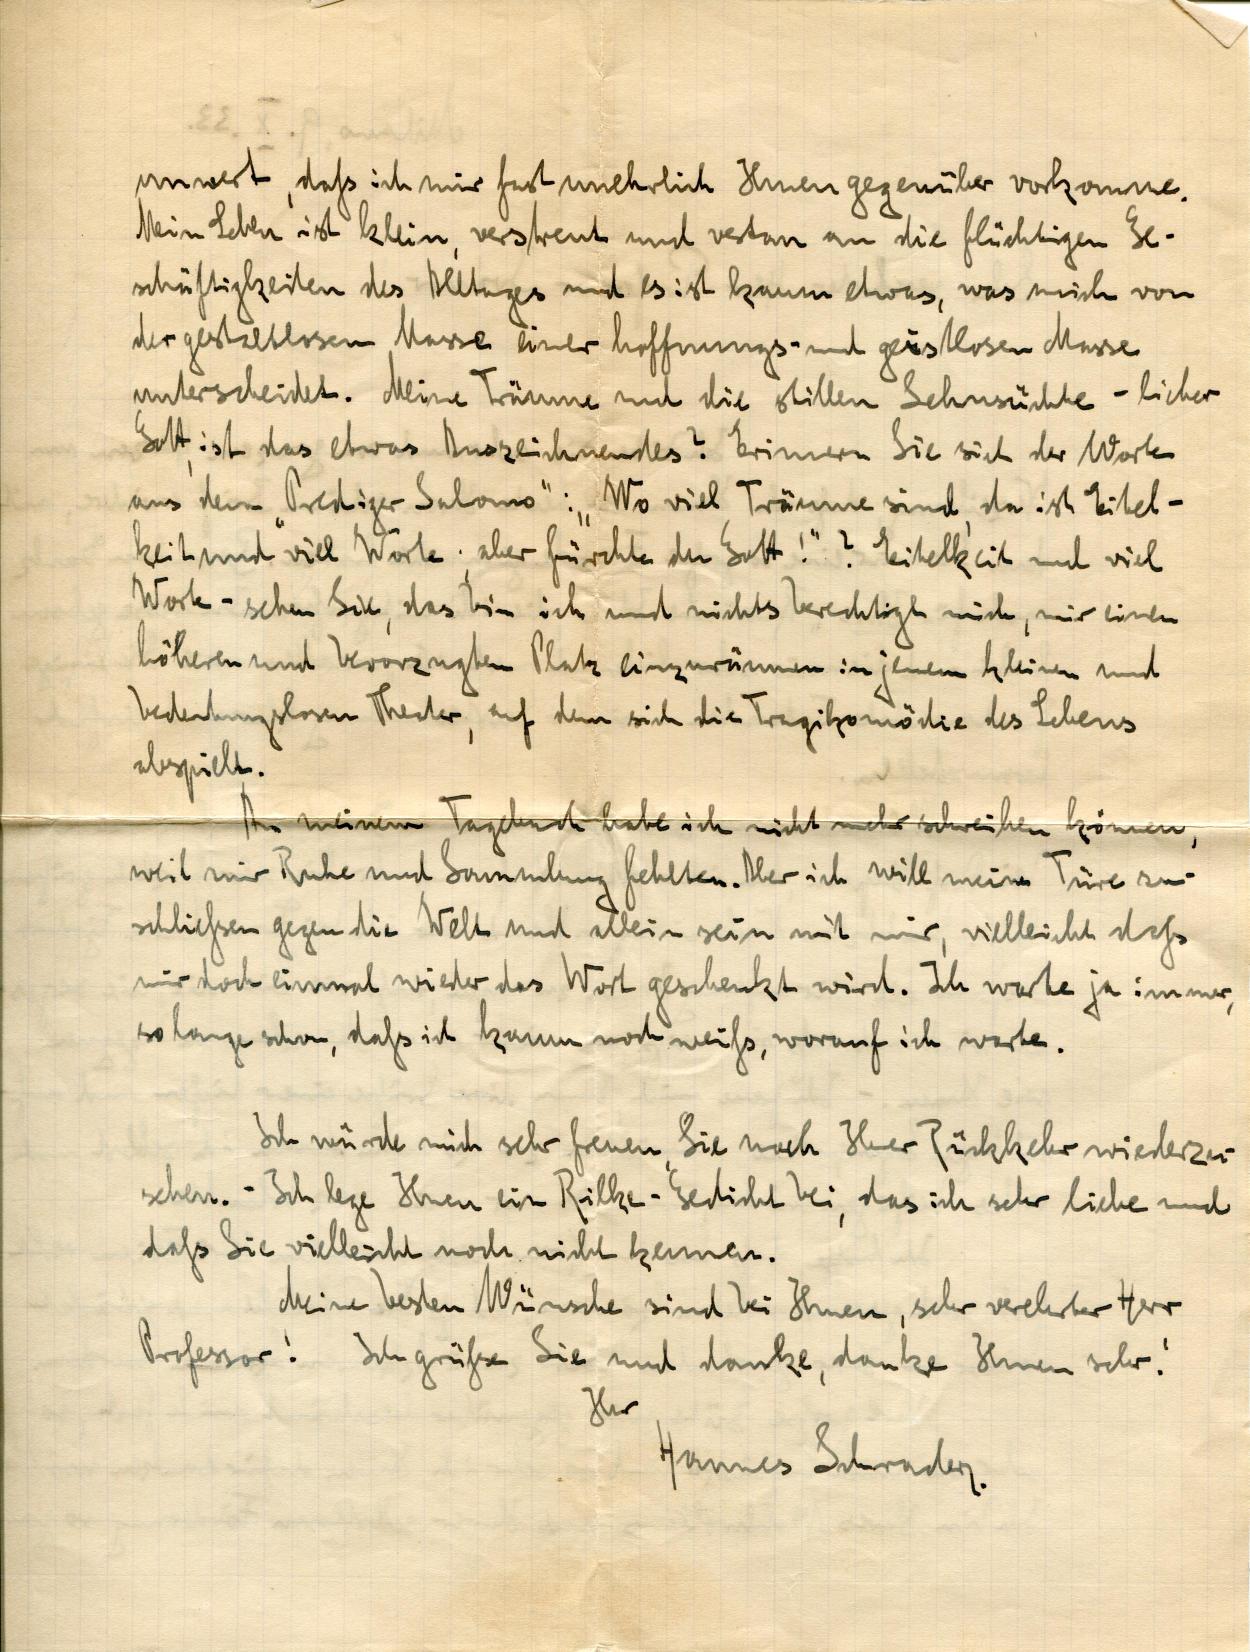 unwert, daß ich mir fast unehrlich Ihnen gegenüber vorkomme.
Mein Leben ist klein, verstreut und vertan an die flüchtigen Ge-
schäftigkeiten des Alltages und es ist kaum etwas, was mich von
der gestaltlosen Masse einer hoffnungs- und geistlosen Masse
unterscheidet. Meine Träume und die stillen Sehnsüchte - lieber
Gott, ist das etwas Auszeichnendes? Erinnern Sie sich der Worte
aus dem "Prediger Salomo": „Wo viel Träume sind, da ist Eitel-
keit und viel Worte; aber fürchte du Gott!"? Eitelkeit und viel
Worte - sehen Sie, das bin ich und nichts berechtigt mich, mir einen
höheren und bevorzugten Platz einzuräumen in jenem kleinen und
bedeutungslosen Theater, auf dem sich die Tragikomödie des Lebens
abspielt.
An meinem Tagebuch habe ich nicht mehr schreiben können,
weil mir Ruhe und Sammlung fehlten. Aber ich will meine Türe zu-
schließen gegen die Welt und allein sein mit mir, vielleicht daß
mir doch einmal wieder das Wort geschenkt wird. Ich warte ja immer,
so lange schon, daß ich kaum noch weiß, worauf ich warte.
Ich würde mich sehr freuen, Sie nach Ihrer Rückkehr wiederzu-
sehen. - Ich lege Ihnen ein Rilke-Gedicht bei, das ich sehr liebe und
daß Sie vielleicht noch nicht kennen.
Meine besten Wünsche sind bei Ihnen, sehr verehrter Herr
Professor! Ich grüße Sie und danke, danke Ihnen sehr!
Ihr
Hannes Schrader.